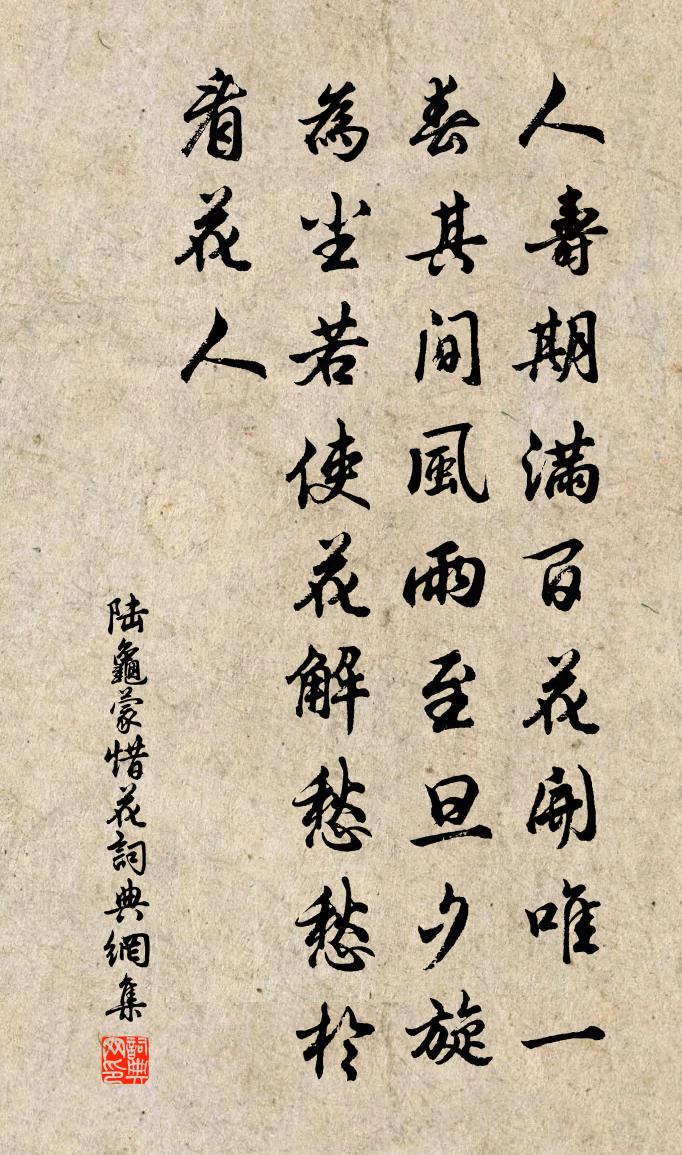 人壽期滿百花開唯一
春其間風雨至旦夕旋
為塵若使花解愁愁於
看花人
陆龜蒙惜花詞典網集
詞典網印